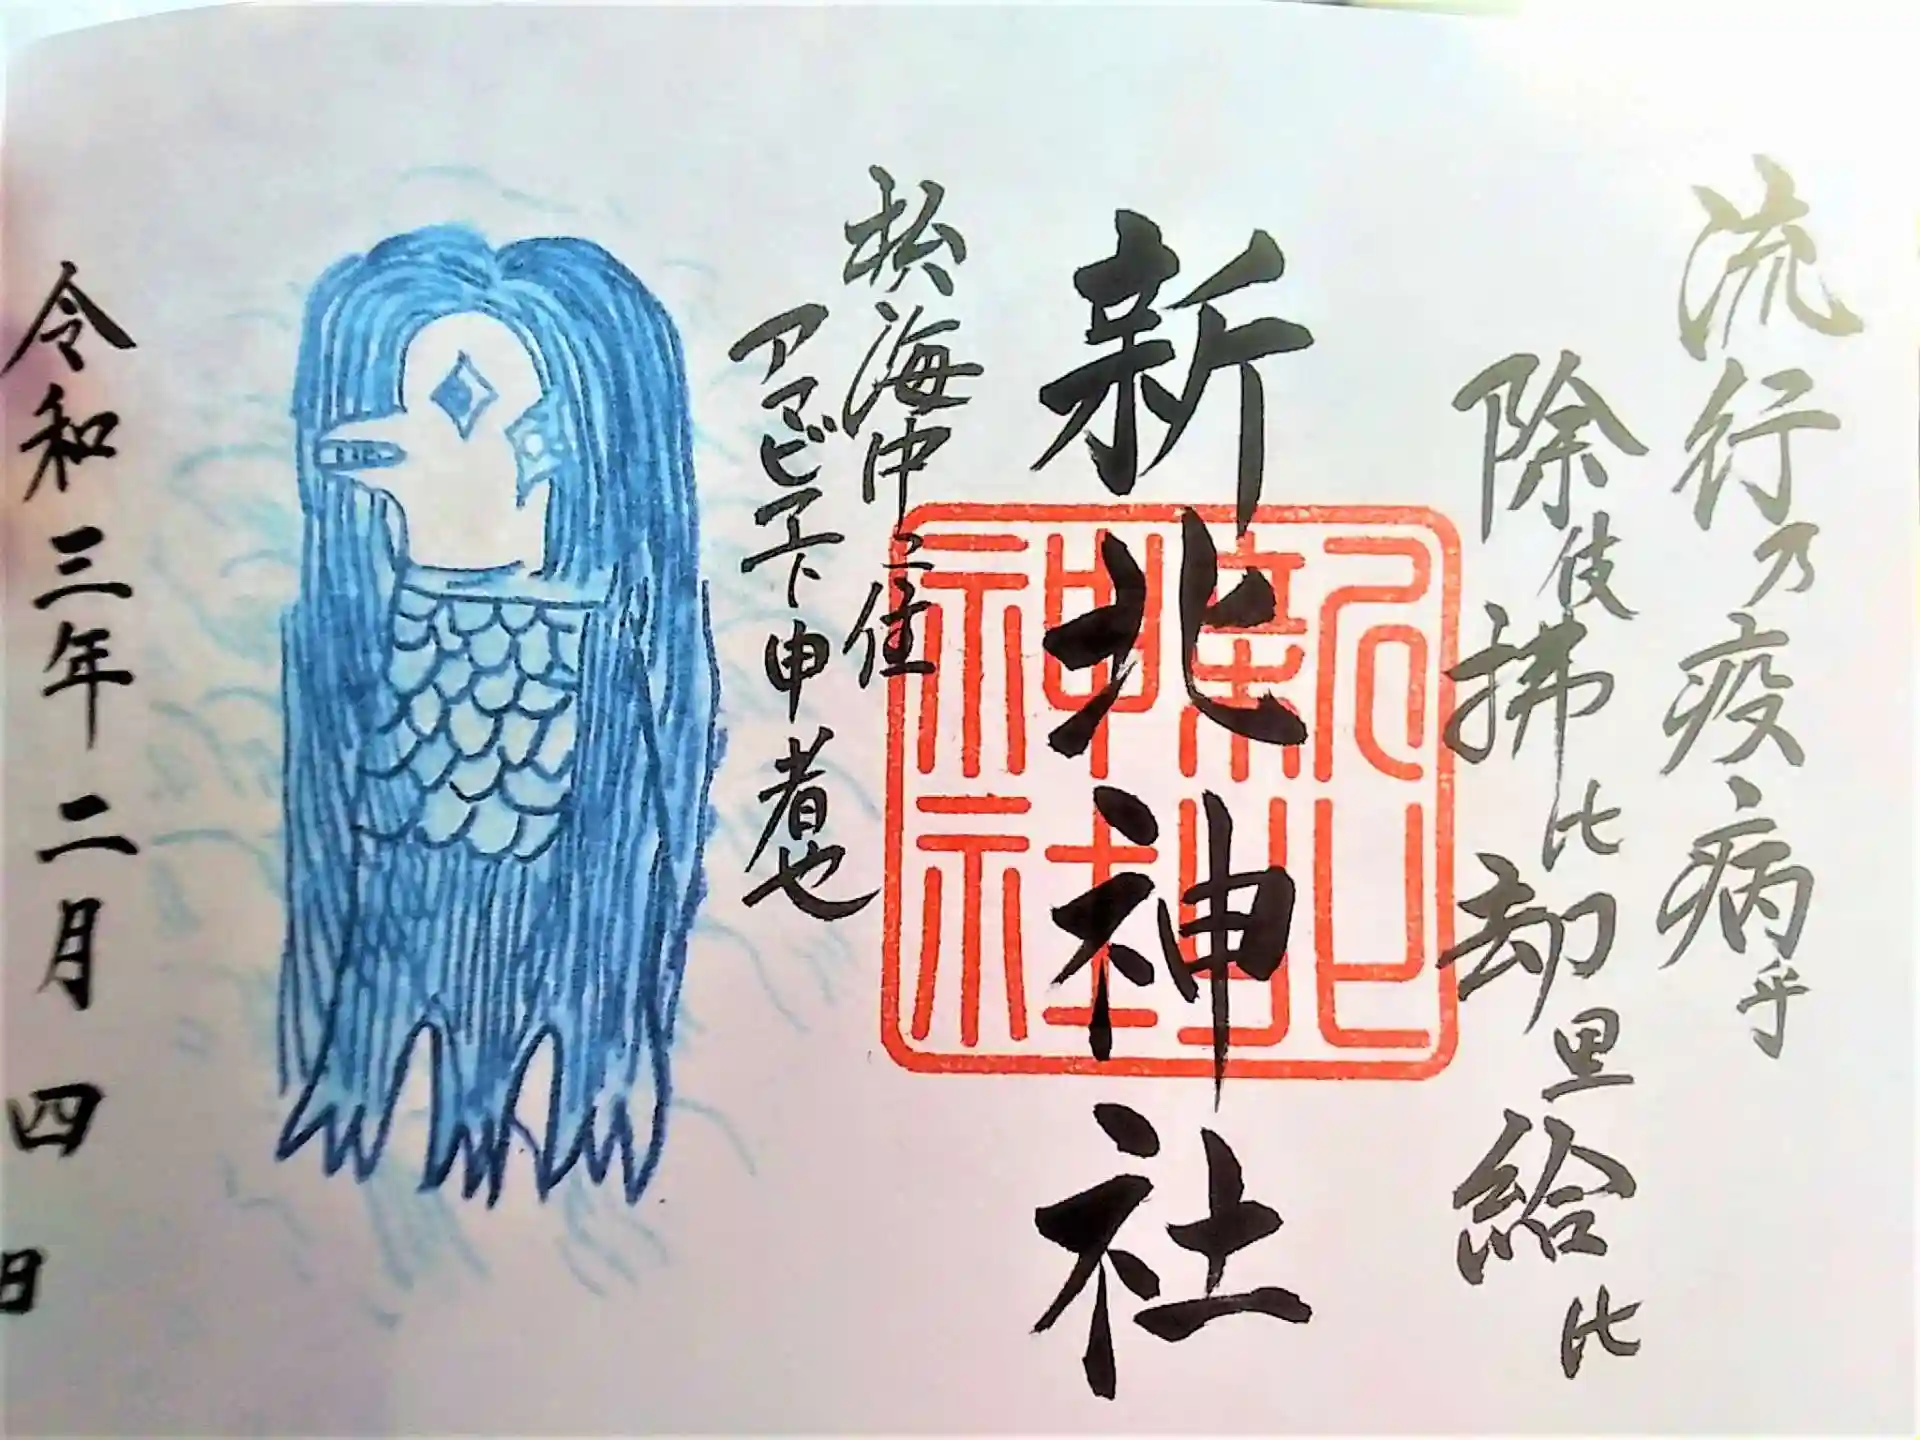 流行乃疫病乎
除伎拂比却里給比
新北神社
新北神社
私海中ニ住
アマビエト申者也
令和三年二月四日